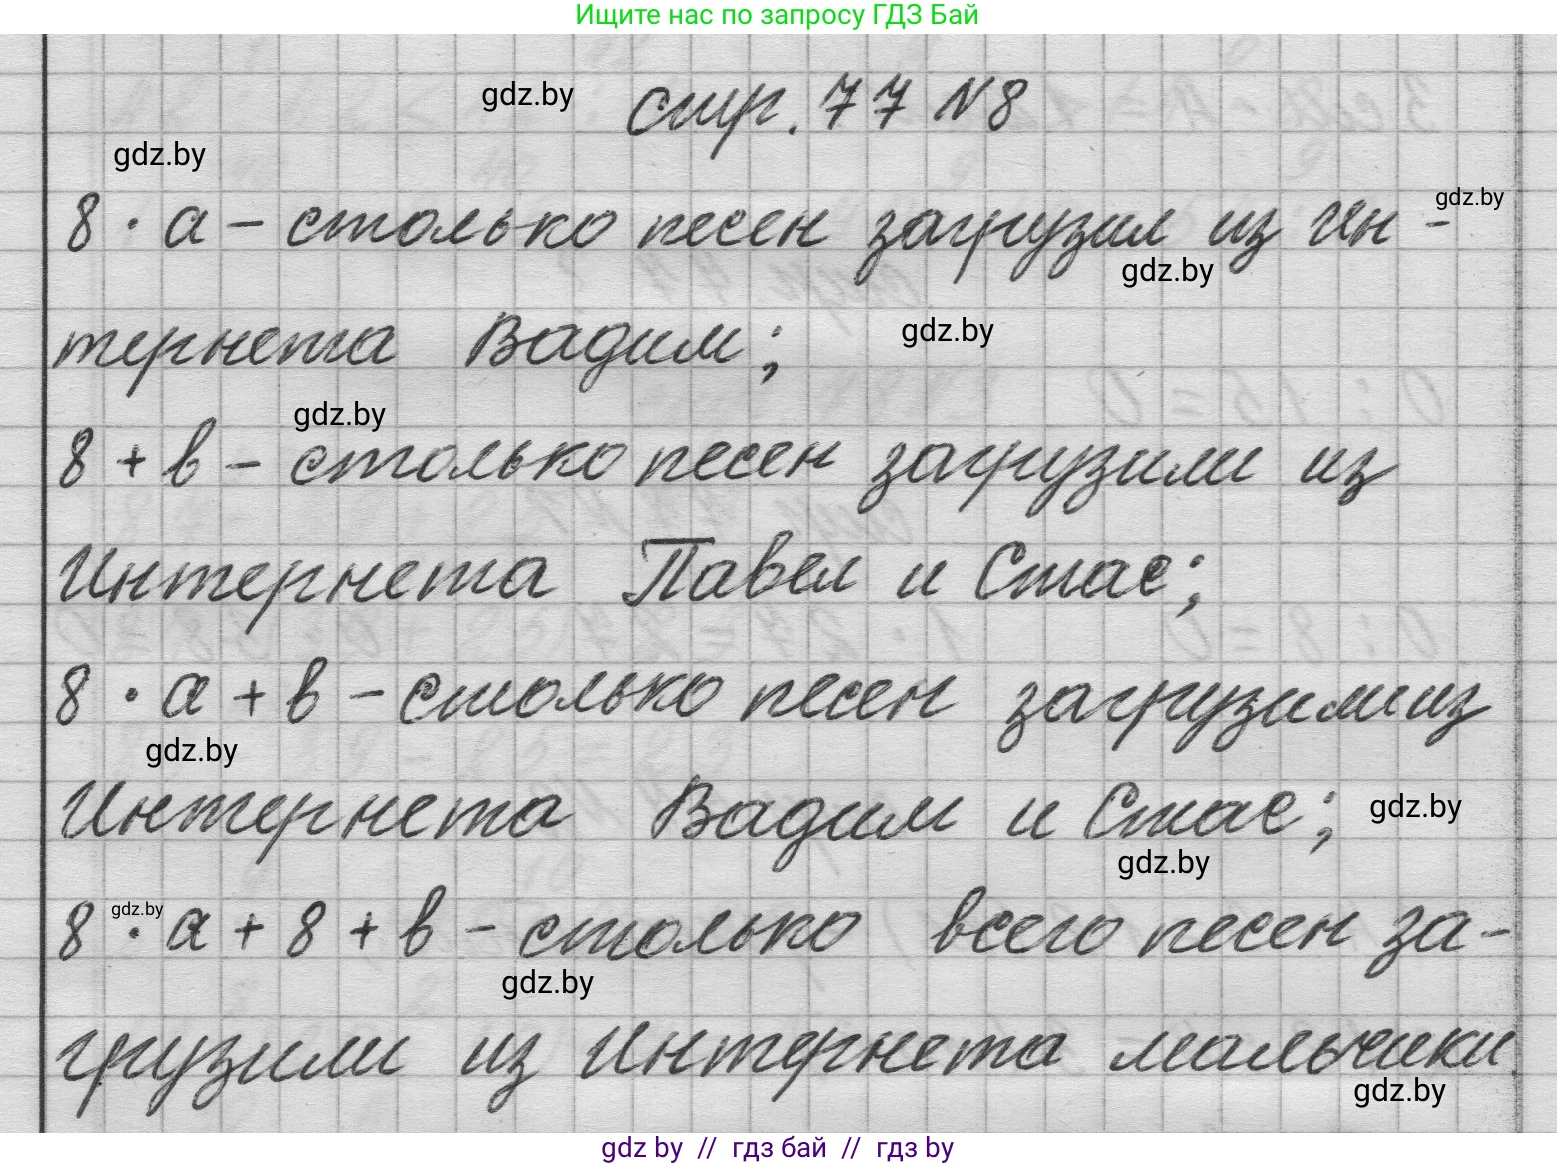 Ищите нас по запросу ГДЗ Бай
gdz.by стр. 77 №8
gdz.by
8 · а - столько песен загрузил из Ин - gdz.by
gdz.by
тернета Вадим; gdz.by
gdz.by
8 + в - столько песен загрузили из
Интернета Павел и Стас;
8 · а + в - столько песен загрузили из
gdz.by
Интернета Вадим и Стас; gdz.by
gdz.by
8 gdz.by · а + 8 + в - столько всего песен за-
gdz.by
грузили из Интернета мальчики.
gdz.by
gdz by // гдз бай // гдз by